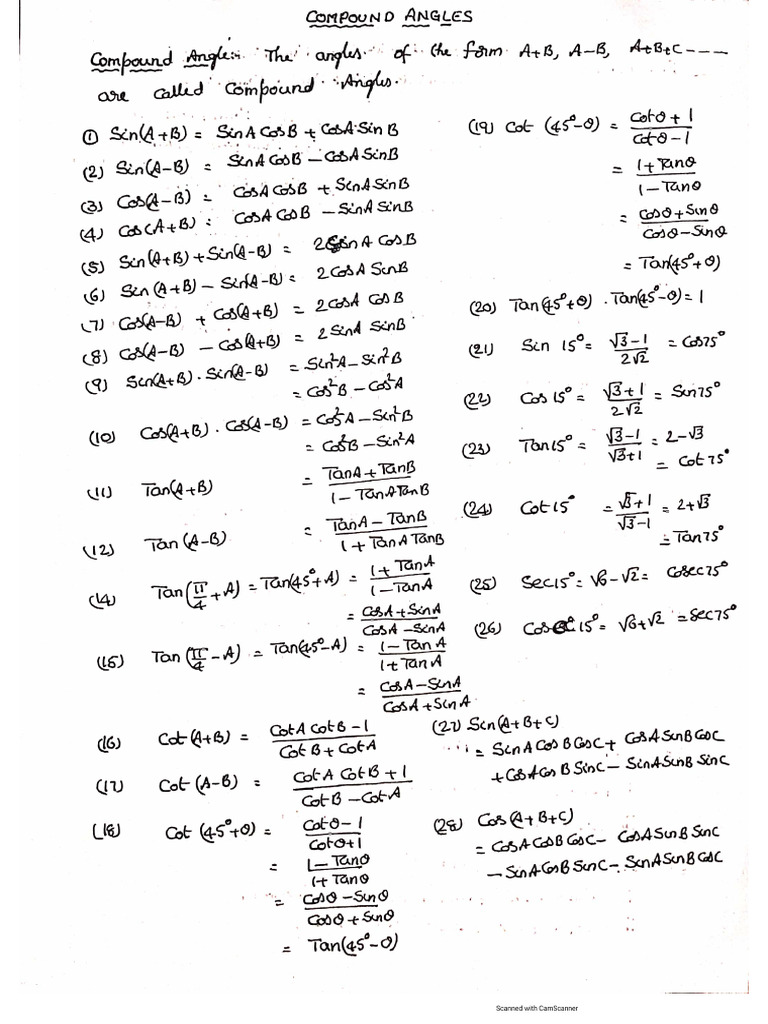 COMPOUND ANGLES
Compound Angle:- The angles of the form A+B, A-B, A+B+C ----
are called Compound Angles.
① Sin(A+B) = SinA CosB + CosA SinB
(2) Sin(A-B) = SinA CosB - CosA SinB
(3) Cos(A-B) = CosA CosB + SinA SinB
(4) Cos(A+B) = CosA CosB - SinA SinB
(5) Sin(A+B) + Sin(A-B) = 2 Sin A CosB
(6) Sin(A+B) - Sin(A-B) = 2 CosA SinB
(7) Cos(A-B) + Cos(A+B) = 2 CosA CosB
(8) Cos(A-B) - Cos(A+B) = 2 SinA SinB
(9) Sin(A+B) . Sin(A-B) = Sin²A - Sin²B
= Cos²B - Cos²A
(10) Cos(A+B) . Cos(A-B) = Cos²A - Sin²B
= Cos²B - Sin²A
(11) Tan(A+B) = (TanA + TanB) / (1 - TanA TanB)
(12) Tan(A-B) = (TanA - TanB) / (1 + TanA TanB)
(14) Tan(π/4 + A) = Tan(45°+A) = (1 + TanA) / (1 - TanA)
= (CosA + SinA) / (CosA - SinA)
(15) Tan(π/4 - A) = Tan(45°-A) = (1 - TanA) / (1 + TanA)
= (CosA - SinA) / (CosA + SinA)
(16) Cot(A+B) = (CotA CotB - 1) / (CotB + CotA)
(17) Cot(A-B) = (CotA CotB + 1) / (CotB - CotA)
(18) Cot(45°+θ) = (Cotθ - 1) / (Cotθ + 1)
= (1 - Tanθ) / (1 + Tanθ)
= (Cosθ - Sinθ) / (Cosθ + Sinθ)
= Tan(45°-θ)
(19) Cot(45°-θ) = (Cotθ + 1) / (Cotθ - 1)
= (1 + Tanθ) / (1 - Tanθ)
= (Cosθ + Sinθ) / (Cosθ - Sinθ)
= Tan(45°+θ)
(20) Tan(45°+θ) . Tan(45°-θ) = 1
(21) Sin 15° = (√3 - 1) / 2√2 = Cos75°
(22) Cos 15° = (√3 + 1) / 2√2 = Sin75°
(23) Tan15° = (√3 - 1) / (√3 + 1) = 2 - √3
= Cot75°
(24) Cot15° = (√3 + 1) / (√3 - 1) = 2 + √3
= Tan75°
(25) Sec15° = √6 - √2 = Cosec75°
(26) Cosec15° = √6 + √2 = Sec75°
(27) Sin(A+B+C)
= SinA CosB CosC + CosA SinB CosC
+ CosA CosB SinC - SinA SinB SinC
(28) Cos(A+B+C)
= CosA CosB CosC - CosA SinB SinC
- SinA CosB SinC - SinA SinB CosC
Scanned with CamScanner